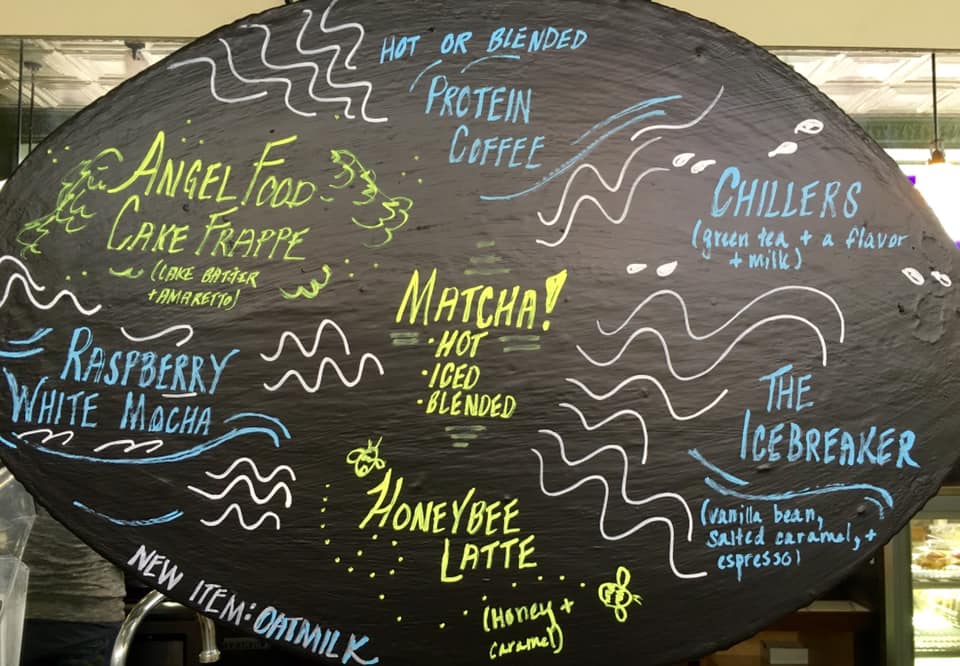 HOT OR BLENDED
PROTEIN
COFFEE
ANGEL FOOD
CAKE FRAPPE
(CAKE BATTER
+AMARETTO)
CHILLERS
(green tea + a flavor
+ milk)
MATCHA!
• HOT
• ICED
• BLENDED
RASPBERRY
WHITE MOCHA
THE
ICEBREAKER
(vanilla bean,
salted caramel, +
espresso)
HONEYBEE
LATTE
(Honey +
caramel)
NEW ITEM: OATMILK